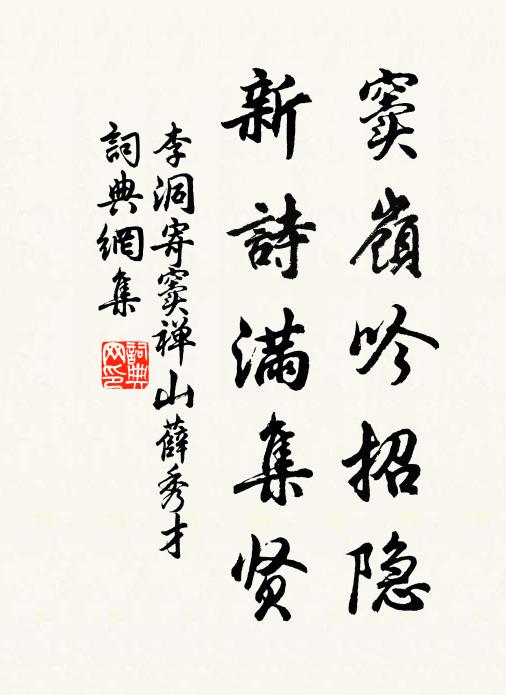 窦嶺吟招隐
新詩满集贤
李洞寄窦禅山薛秀才
詞典網集
詞典网印